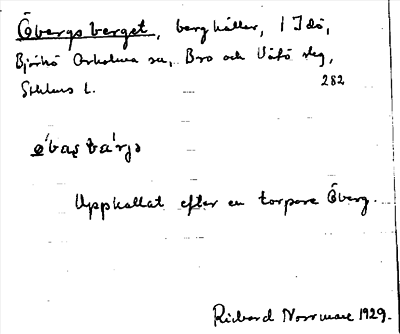 Öbergsberget, berghäller, 1 Idö,
Björkö Arholma sn, Bro och Vätö slg,
Sthlms l. 282
Uppkallat efter en torpare Öberg.
Rickard Norrman 1929.